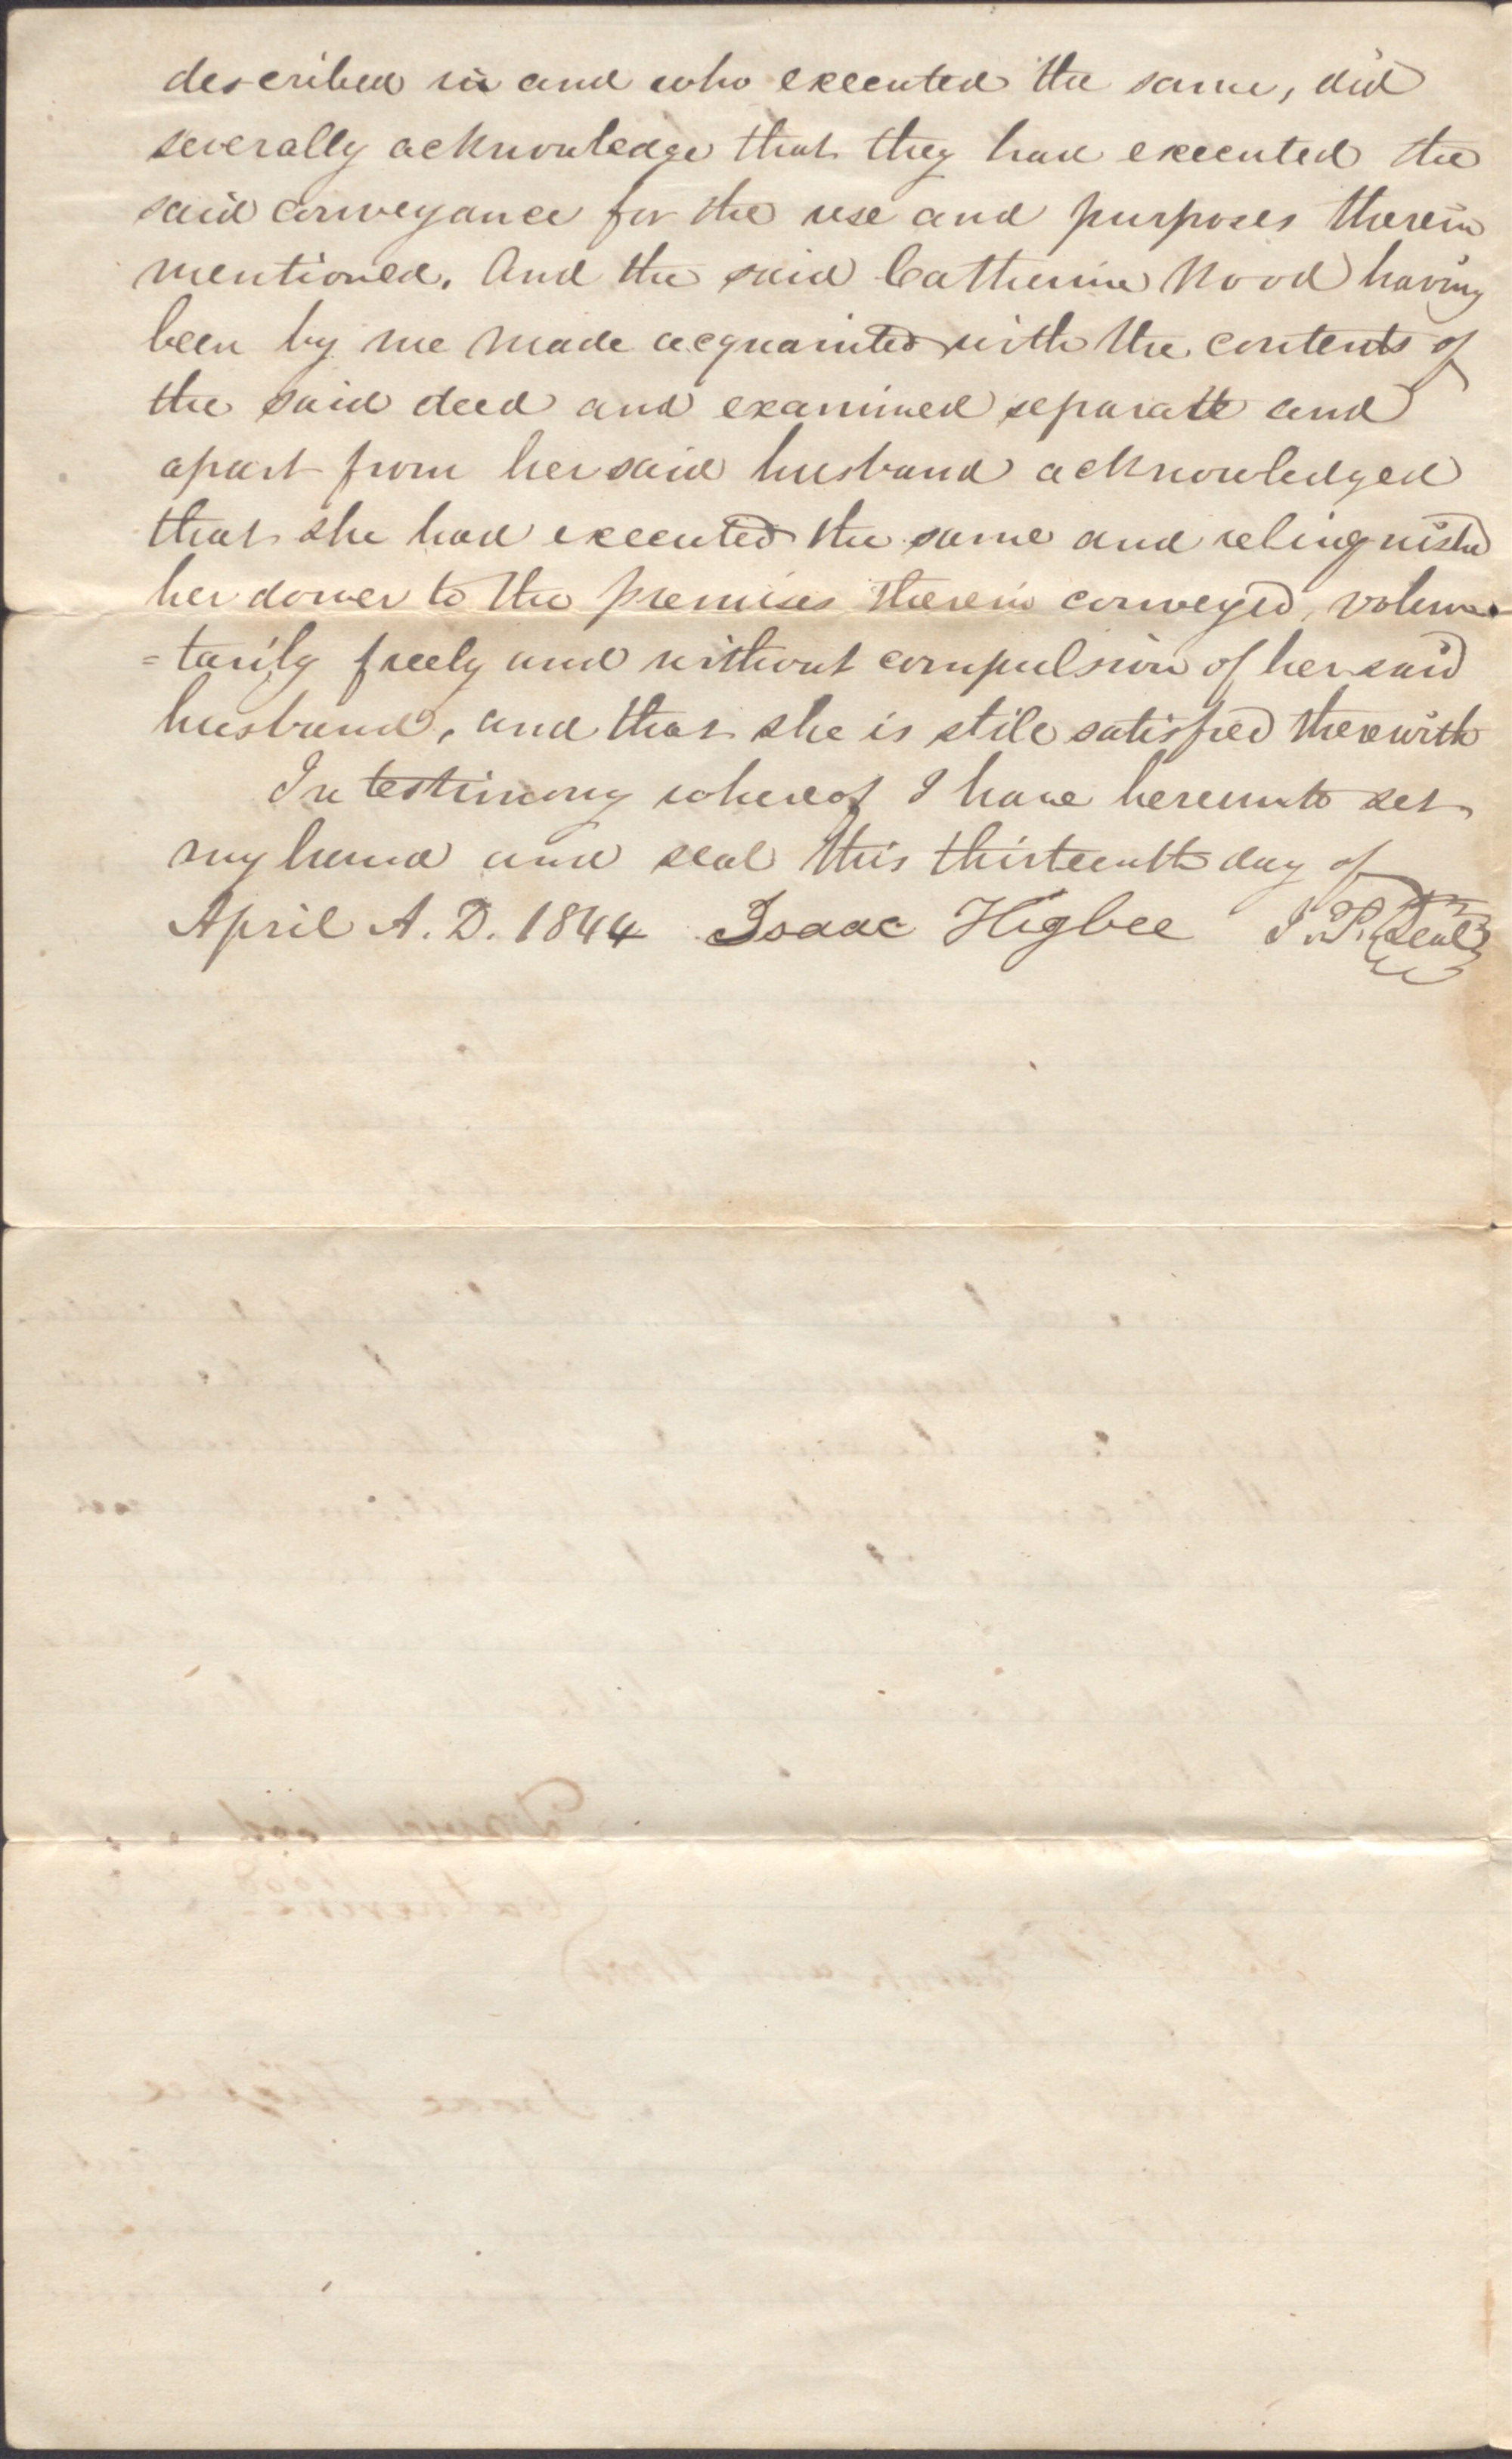 described in and who executed the same, did
severally acknowledge that they had executed the
said conveyance for the use and purposes therein
mentioned. And the said Catherine Wood having
been by me made acquainted with the contents of
the said deed and examined separate and
apart from her said husband acknowledged
that she had executed the same and relinquishd
her dower to the premises therein conveyed, volun-
=tarily freely and without compulsion of her said
husband, and that she is still satisfied therewith
In testimony whereof I have hereunto set
my hand and seal this thirteenth day of
April A.D. 1844 Isaac Higbee J.P. Seal